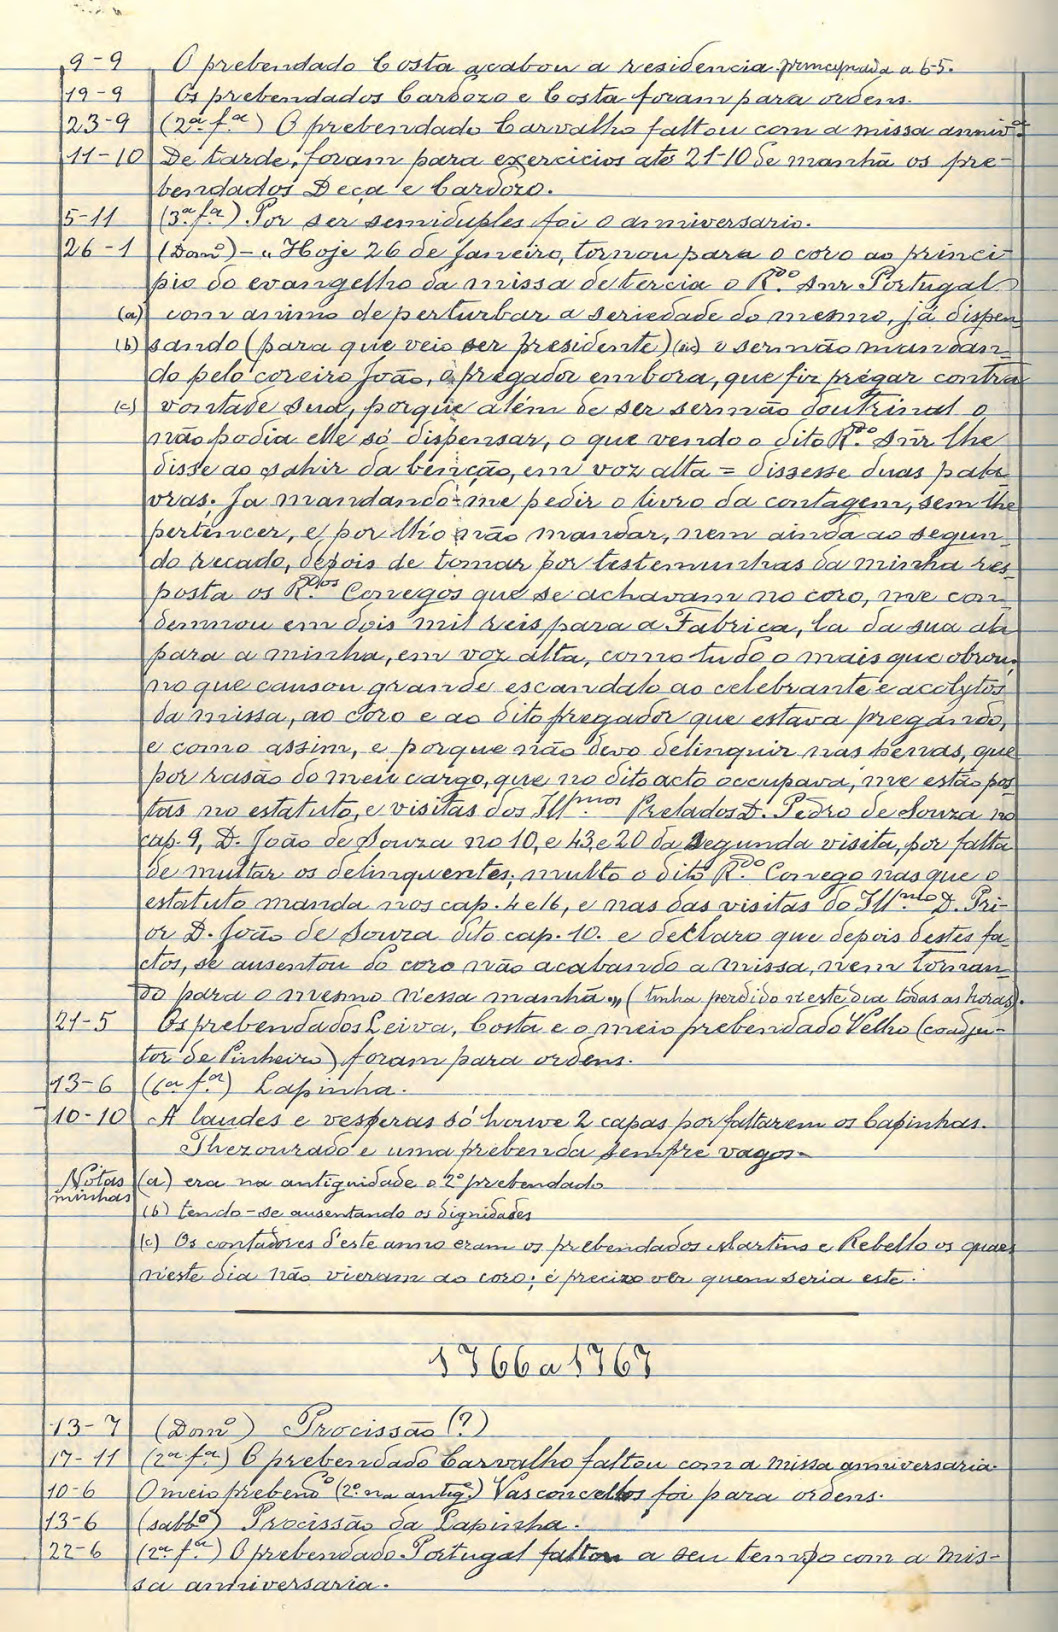 9-9 O prebendado Costa acabou a residencia principiada a 6-5.
19-9 Os prebendados Cardozo e Costa foram para ordens.
23-9 (2ª fª) O prebendado Carvalho faltou com a missa annivª.
11-10 De tarde, foram para exercicios até 21-10 de manhã os pre-
bendados Deça e Cardozo.
5-11 (3ª fª). Por ser semiduples foi o anniversario.
26-1 (Domº) – "Hoje 26 de Janeiro, tornou para o coro ao princi-
pio do evangelho da missa de tercia o Rdo. Snr Portugal
(a) com animo de perturbar a seriedade do mesmo, já dispen-
(b) sando (para que veio ser presidente) o sermão mandan-
do pelo coreiro João, o prégador embora, que fiz prégar contra
(c) vontade sua, porque além de ser sermão doutrinal o
não podia elle só dispensar, o que vendo o dito Rdo. Snr lhe
disse ao sahir da benção, em voz alta = dissesse duas pala-
vras. Ja mandando-me pedir o livro da contagem, sem lhe
pertencer, e por lh'o não mandar, nem ainda ao segun-
do recado, depois de tomar por testemunhas da minha res-
posta os Rdos. Conegos que se achavam no coro, me con-
demnou em dois mil reis para a Fabrica, la da sua ala
para a minha, em voz alta, como tudo o mais que obrou,
no que causou grande escandalo ao celebrante e acolytos
da missa, ao coro e ao dito pregador que estava pregando,
e como assim, e porque não devo delinquir nas penas, que
por rasão do meu cargo, que no dito acto occupava, me estão pos-
tas no estatuto, e visitas dos Illmos. Prelados D. Pedro de Souza no
cap. 9, D. João de Souza no 10, e 43, e 20 da segunda visita, por falta
de multar os delinquentes; multo o dito Rdo. Conego nas que o
estatuto manda nos cap. 4 e 16, e nas das visitas do Illmo D. Pri-
or D. João de Souza dito cap. 10. e declaro que depois destes fa-
ctos, se ausentou do coro não acabando a missa, nem tornan-
do para o mesmo n'essa manhã." (tinha perdido n'este dia todas as horas).
21-5 Os prebendados Leiva, Costa e o meio prebendado Velho (coadju-
tor de Pinheiro) foram para ordens.
13-6 (6ª fª) Lapinha.
10-10 A laudes e vesperas só houve 2 capas por faltarem os Capinhas.
Thezourado e uma prebenda sempre vagos.
Notas minhas (a) era na antiguidade o 2º prebendado
(b) tendo-se ausentando os dignidades
(c) Os contadores d'este anno eram os prebendados Martins e Rebello os quaes
n'este dia não vieram ao coro; é precizo ver quem seria este.
1766 a 1767
13-7 (Domº) Procissão (?)
17-11 (2ª fª) O prebendado Carvalho faltou com a missa anniversaria.
10-6 O meio prebendº (2º na antigº.) Vasconcellos foi para ordens.
13-6 (sabbº) Procissão da Lapinha.
22-6 (2ª fª) O prebendado Portugal faltou a seu tempo com a mis-
sa anniversaria.